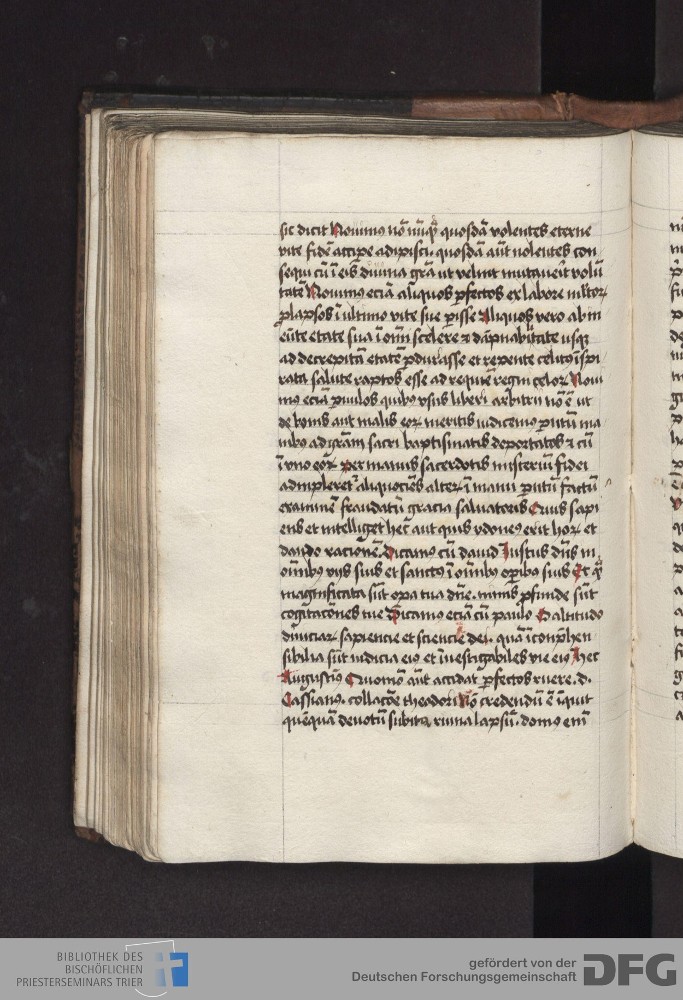 sic dicit Nouimus nō nūqͣ quosdā volentes eterne
vite fidē accipe adipisci. quosdā aūt nolentes con
sequi cū ī eis diuina grā ut velint mutaueit volū
tatē Nouimus eciā aliquos ꝑfectos ex labore
ꝓlapsos ī ultimo vite sue ꝑisse Aliquos vero ab in
eūte etate sua ī om̄i scelere ⁊ dāpnabilitate usqꝫ
ad decrepitā etatē ꝑdurasse et repente celitꝰ īspi
rata salute raptos esse ad requiē regni celoꝝ Noui
mus eciā ꝑuulos quibꝰ usus liberi arbitrii nō ē ut
de bonis aut malis eoꝝ meritis iudicemꝰ ꝑentū ma
nibꝰ ad grām sacri baptismatis deportatos ⁊ cū
ī uno eoꝝ per manus sacerdotis misteriū fidei
adimpleretᷣ aliquociēs alteꝝ ī manu ꝑentū factū
exanimē fraudatū gracia saluatoris Quis sapi
ens et intelliget hec aut quis ydoneꝰ erit hoꝝ et
dando racionē. Dicamꝰ cū dauid Iustus dn̄s in
om̄ibꝰ viis suis et sanctꝰ ī om̄ibꝰ oꝑibꝰ suis Et qͣ
magnificata sūt oꝑa tua dn̄e. nimis ꝓfunde sūt
cogitacōnes tue Dicamus eciā cū paulo O altitudo
diuiciaꝝ sapiencie et sciencie dei. quā īconꝓhen
sibilia sūt iudicia eiꝰ et īuestigabiles vie eiꝰ Hec
Augustinꝰ Quomō aūt accidat ꝑfectos ruere. d.
Cassianꝰ. collacōe theodori Nō credendū ē inquit
quēquā deuotū subita ruina lapsū. domꝰ em̄
BIBLIOTHEK DES
BISCHÖFLICHEN
PRIESTERSEMINARS TRIER
gefördert von der
Deutschen Forschungsgemeinschaft
DFG